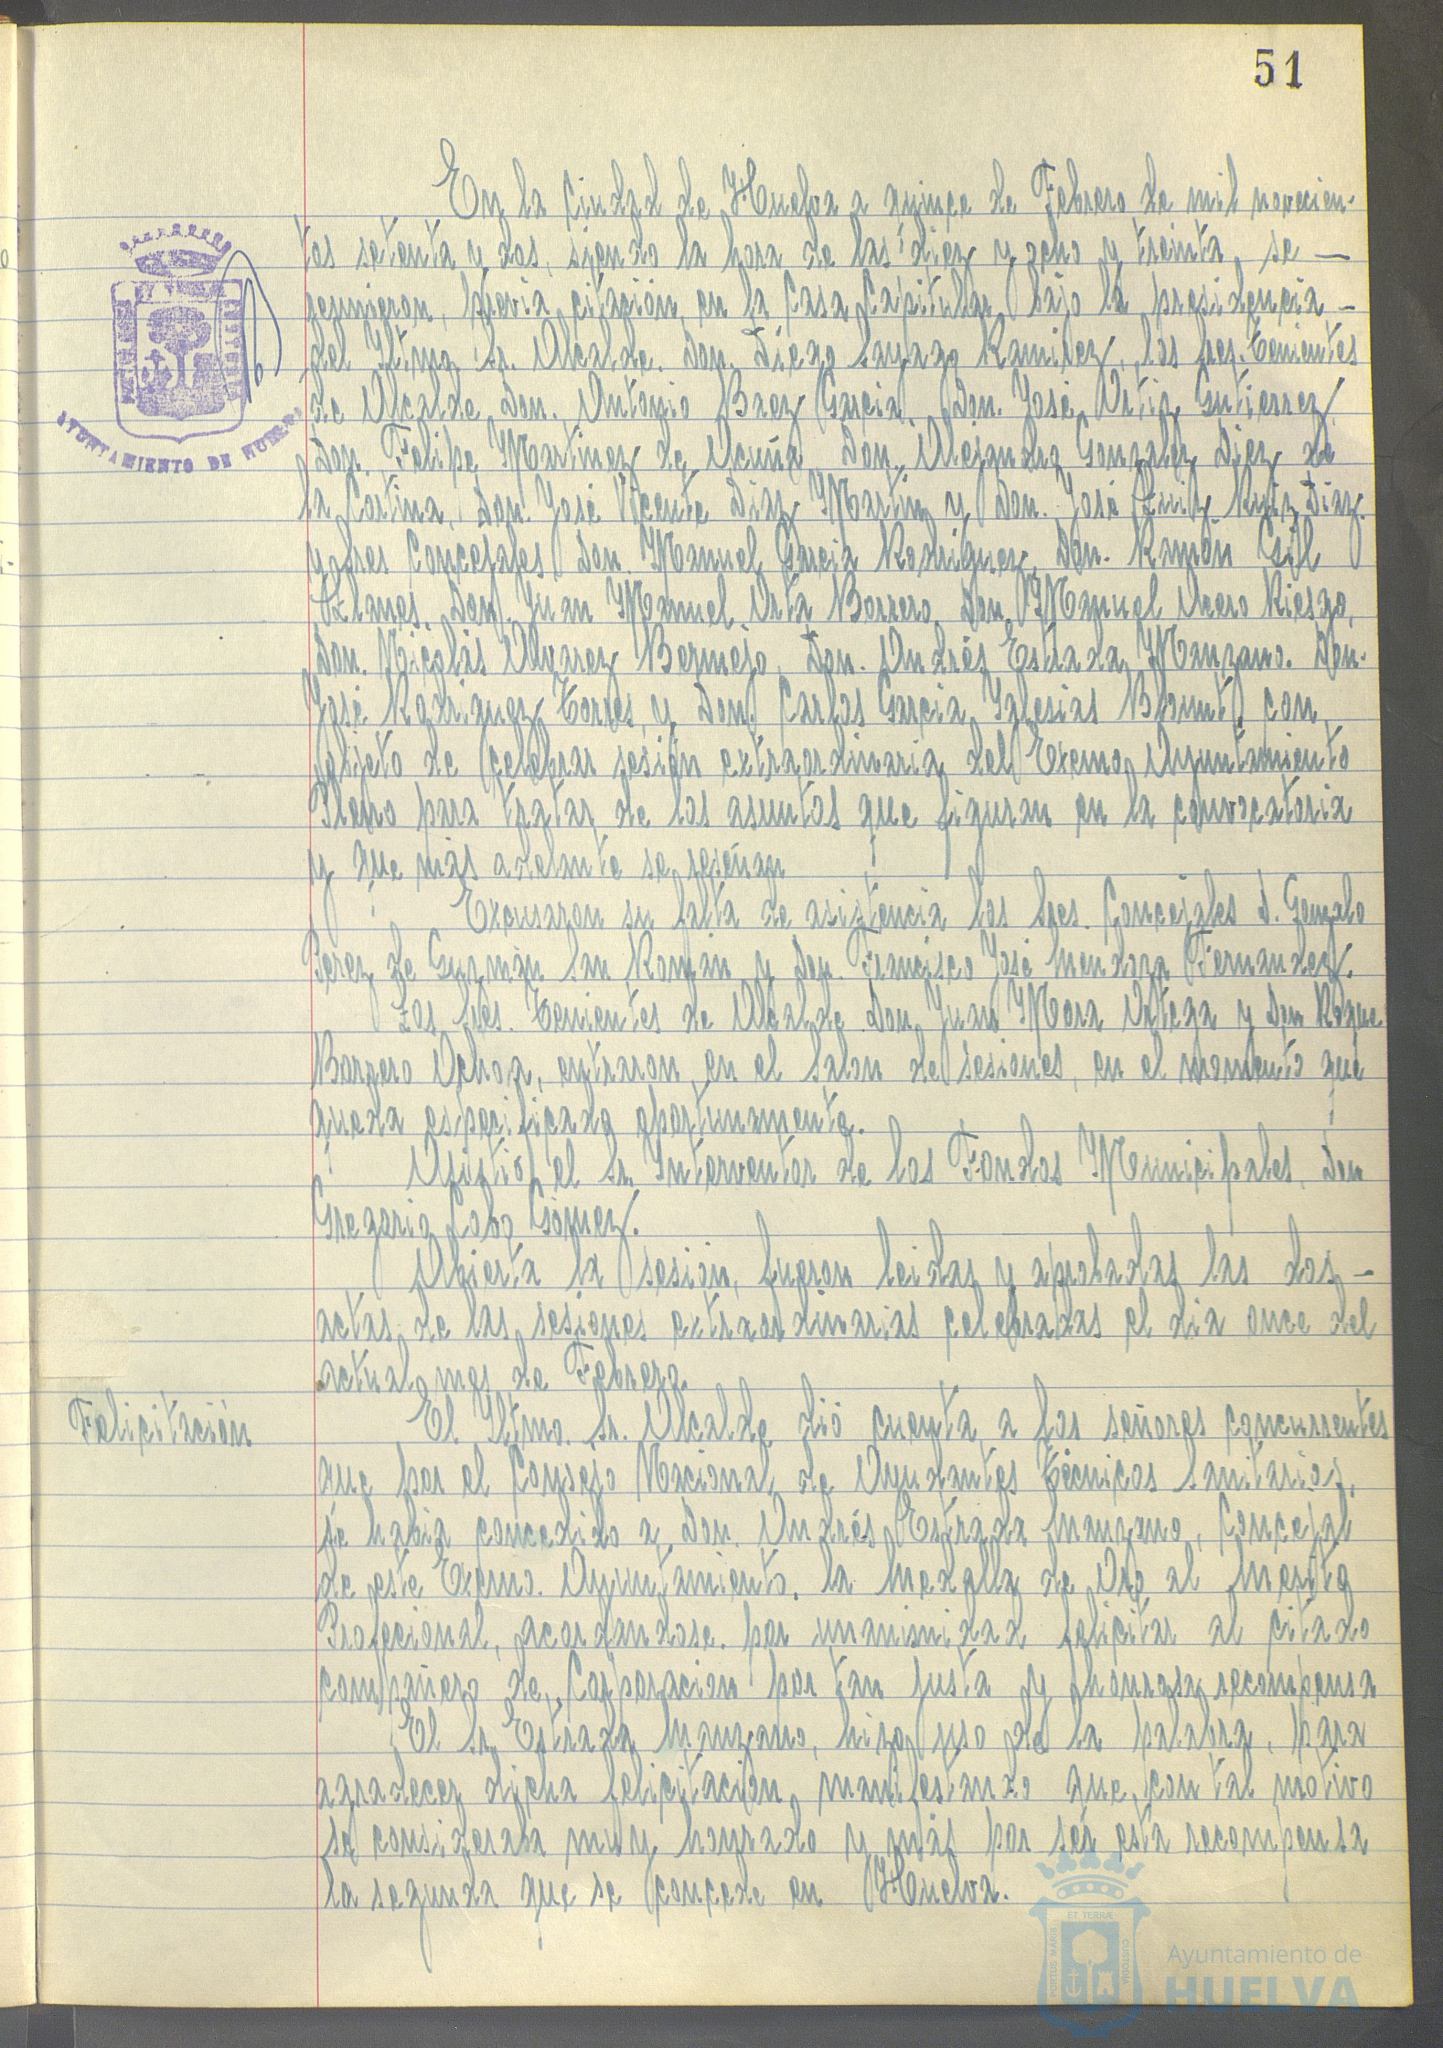 51
En la Ciudad de Huelva a quince de Febrero de mil novecien-
tos setenta y dos, siendo la hora de las diez y ocho y treinta, se —
reunieron, previa citación, en la Casa Capitular bajo la presidencia —
del Iltmo. Sr. Alcalde. Don. Diego Sayago Ramirez, los Sres. Tenientes
de Alcalde Don. Antonio Baez Garcia, Don. José Ortiz Gutierrez,
Don. Felipe Martinez de Acuña, Don. Alejandro Gonzalez Diez de
la Cortina, Don. José Vicente Diaz Martin y Don. José Ruiz Diaz
y Sres Concejales Don. Manuel Garcia Rodriguez, Don. Ramón Gil
Don. Juan Manuel Orta Borrero, Don. Manuel Acero Riesgo,
Don. Nicolás Alvarez Bermejo, Don. Andrés Estrada Manzano. Don.
José Rodriguez Torres, y Don. Carlos Garcia Iglesias Blount, con
objeto de celebrar sesión extraordinaria del Excmo. Ayuntamiento
Pleno para tratar de los asuntos que figuran en la convocatoria
y que más adelante se reseñan
Excusaron su falta de asistencia los Sres. Concejales D. Gonzalo
Perez de Guzmán San Román y Don. Francisco José Mendoza Fernandez.
Los Sres. Tenientes de Alcalde Don Juan Mora Ortega y Don Roque
Borrero Ochoa, entraron en el Salon de sesiones, en el momento que
queda especificado oportunamente.
Asistió el Sr. Interventor de los Fondos Municipales, Don
Gregorio Cobo Gómez.
Abierta la sesión, fueron leidas y aprobadas las dos —
actas de las sesiones extraordinarias celebradas el dia once del
actual mes de Febrero.
Felicitación
El Iltmo. Sr. Alcalde dió cuenta a los señores concurrentes
que por el Consejo Nacional de Ayudantes Técnicos Sanitarios,
se habia concedido a Don. Andrés Estrada Manzano, Concejal
de este Excmo. Ayuntamiento, la Medalla de Oro al Merito
Profecional, acordandose por unanimidad felicitar al citado
compañero de Corporacion por tan justa y honrosa recompensa
El Sr. Estrada Manzano, hizo uso de la palabra, para
agradecer dicha felicitación, manifestando que con tal motivo
se consideraba muy honrado y más por ser esta recompensa
la segunda que se concede en Huelva.
AYUNTAMIENTO DE HUELVA
PORTUS MARIS ET TERRÆ CUSTODIA
Ayuntamiento de
HUELVA